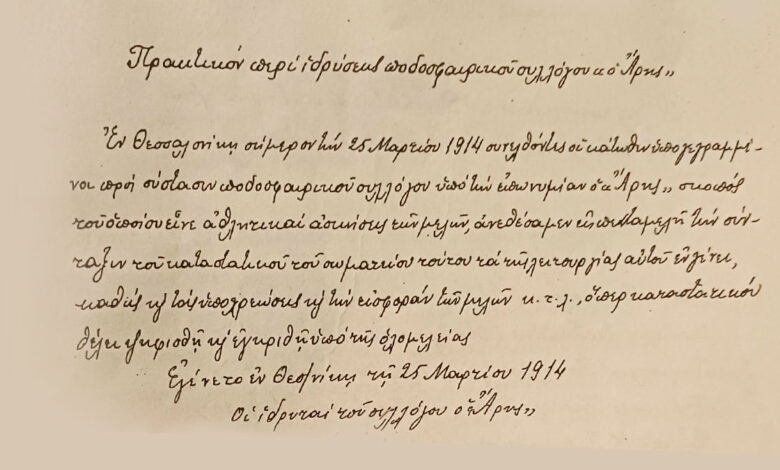 Πρακτικόν περί ἱδρύσεως ποδοσφαιρικοῦ συλλόγου «ὁ Ἄρης„
Ἐν Θεσσαλονίκῃ σήμερον τήν 25 Μαρτίου 1914 συνελθόντες οἱ κάτωθεν ὑπογεγραμμέ-
νοι πρός σύστασιν ποδοσφαιρικοῦ συλλόγου ὑπό τήν ἐπωνυμίαν ὁ «Ἄρης„ σκοπός
τοῦ ὁποίου εἶνε ἀθλητικαί ἀσκήσεις τῶν μελῶν, ἀνεθέσαμεν εἰς πενταμελῆ τήν σύν-
ταξιν τοῦ καταστατικοῦ τοῦ σωματείου τούτου τά τῆς λειτουργίας αὐτοῦ ἐν γένει,
καθώς κ τάς ὑποχρεώσεις κ τήν εἰσφοράν τῶν μελῶν κ.τ.λ., ὅπερ καταστατικόν
θέλει ψηφισθῇ κ ἐγκριθῇ ὑπό τῆς ὁλομελείας
Ἐγένετο ἐν Θεσ/νίκῃ τῇ 25 Μαρτίου 1914
Οἱ ἱδρυταί τοῦ συλλόγου ὁ «Ἄρης„